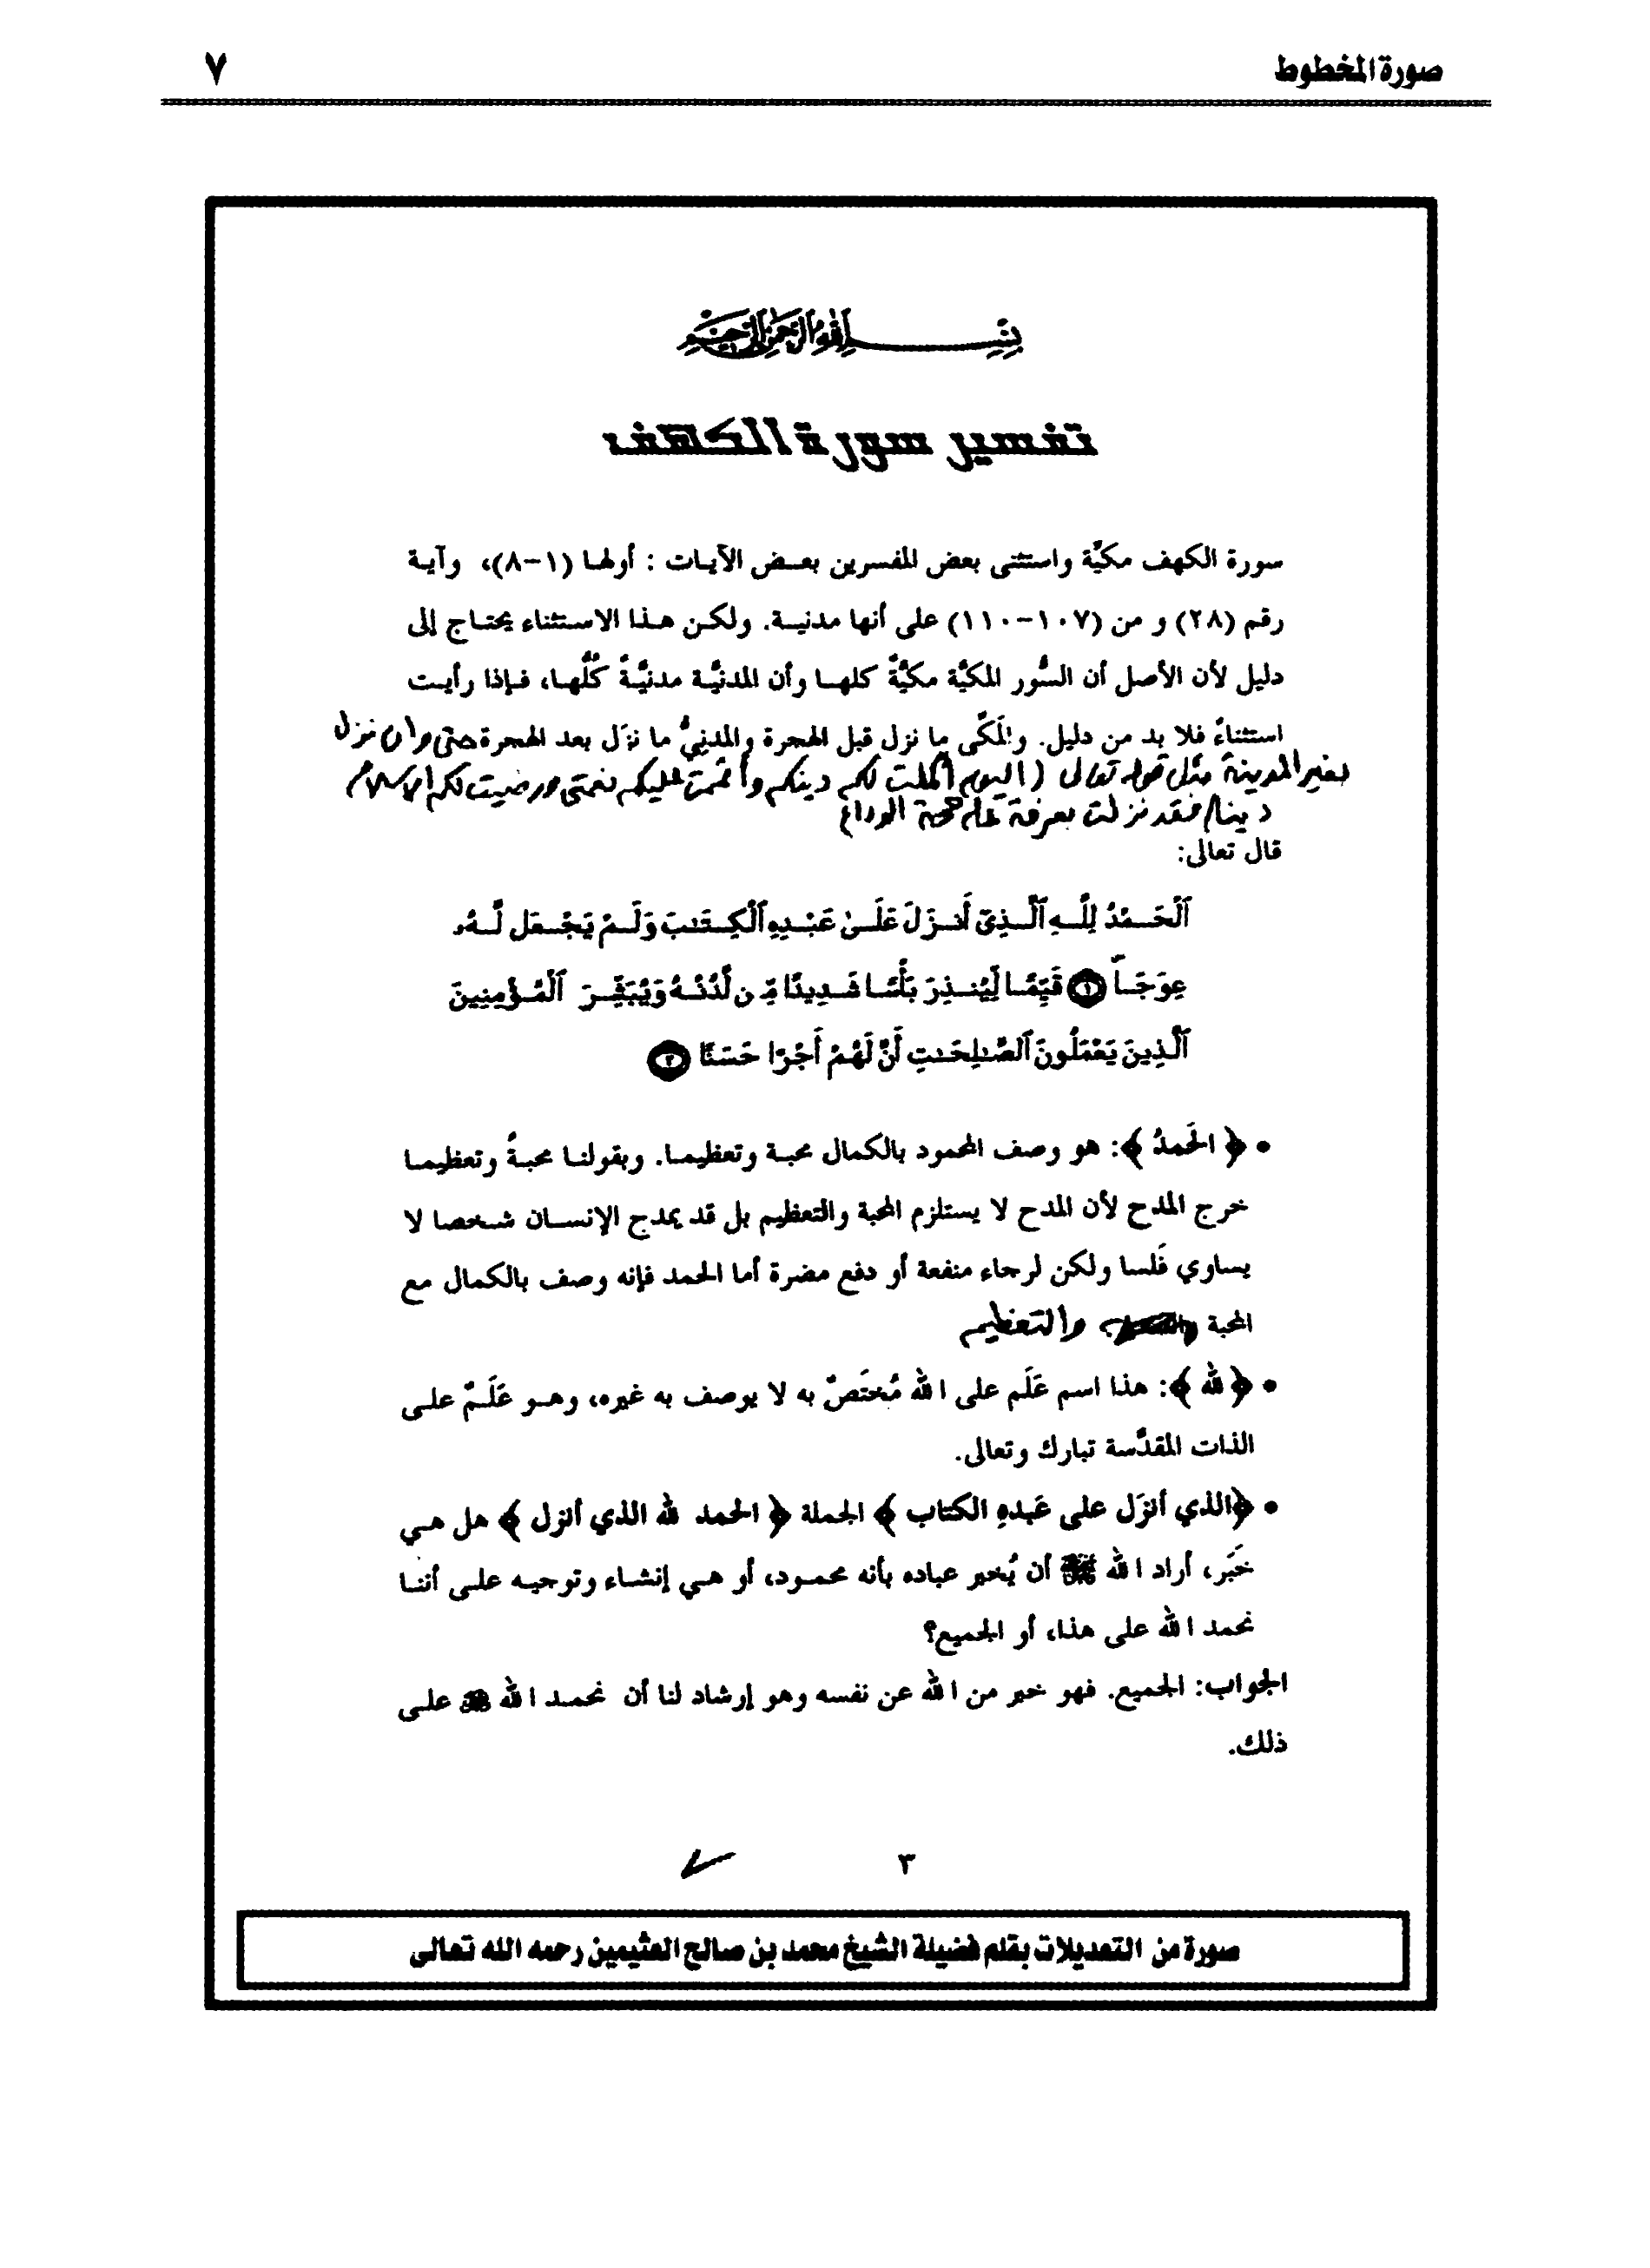 صورة المخطوط
٧
بِسْمِ اللَّهِ الرَّحْمَنِ الرَّحِيمِ
تفسير سورة الكهف
سورة الكهف مكيَّة واستثنى بعض المفسرين بعض الآيات : أولها (١-٨)، وآية
رقم (٢٨) و من (١٠٧-١١٠) على أنها مدنية. ولكن هذا الاستثناء يحتاج إلى
دليل لأن الأصل أن السُّور المكيَّة مكيَّةٌ كلها وأن المدنيَّة مدنيَّةٌ كُلُّها، فإذا رأيت
استثناءً فلا بد من دليل. والمَكِّي ما نزل قبل الهجرة والمدنِيُّ ما نزَل بعد الهجرة حتى وان نزل
بغير المدينة مثل قوله تعالى (اليوم أكملت لكم دينكم وأتممت عليكم نعمتي ورضيت لكم الإسلام
دينا) فقد نزلت بعرفة عام حجة الوداع
قال تعالى:
ٱلْحَمْدُ لِلَّهِ ٱلَّذِىٓ أَنزَلَ عَلَىٰ عَبْدِهِ ٱلْكِتَٰبَ وَلَمْ يَجْعَل لَّهُۥ
عِوَجَاۜ ١ قَيِّمًا لِّيُنذِرَ بَأْسًا شَدِيدًا مِّن لَّدُنْهُ وَيُبَشِّرَ ٱلْمُؤْمِنِينَ
ٱلَّذِينَ يَعْمَلُونَ ٱلصَّٰلِحَٰتِ أَنَّ لَهُمْ أَجْرًا حَسَنًا ٢
• ﴿ الحَمدُ ﴾: هو وصف المحمود بالكمال محبة وتعظيما. وبقولنا محبةً وتعظيما
خرج المدح لأن المدح لا يستلزم المحبة والتعظيم بل قد يمدح الإنسان شخصا لا
يساوي فَلسا ولكن لرجاء منفعة أو دفع مضرة أما الحمد فإنه وصف بالكمال مع
المحبة والتعظيم
• ﴿ لله ﴾: هذا اسم عَلَم على الله مُختَصٌ به لا يوصف به غيره، وهو عَلَمٌ على
الذات المقدَّسة تبارك وتعالى.
• ﴿الذي أنزَل على عَبدهِ الكتاب ﴾ الجملة ﴿ الحمد لله الذي أنزل ﴾ هل هي
خَبَر، أراد الله ﷻ أن يُخبر عباده بأنه محمود، أو هي إنشاء وتوجيه على أننا
نحمد الله على هذا، أو الجميع؟
الجواب: الجميع. فهو خبر من الله عن نفسه وهو إرشاد لنا أن نحمد الله ﷻ على
ذلك.
٣
صورة من التعديلات بقلم فضيلة الشيخ محمد بن صالح العثيمين رحمه الله تعالى